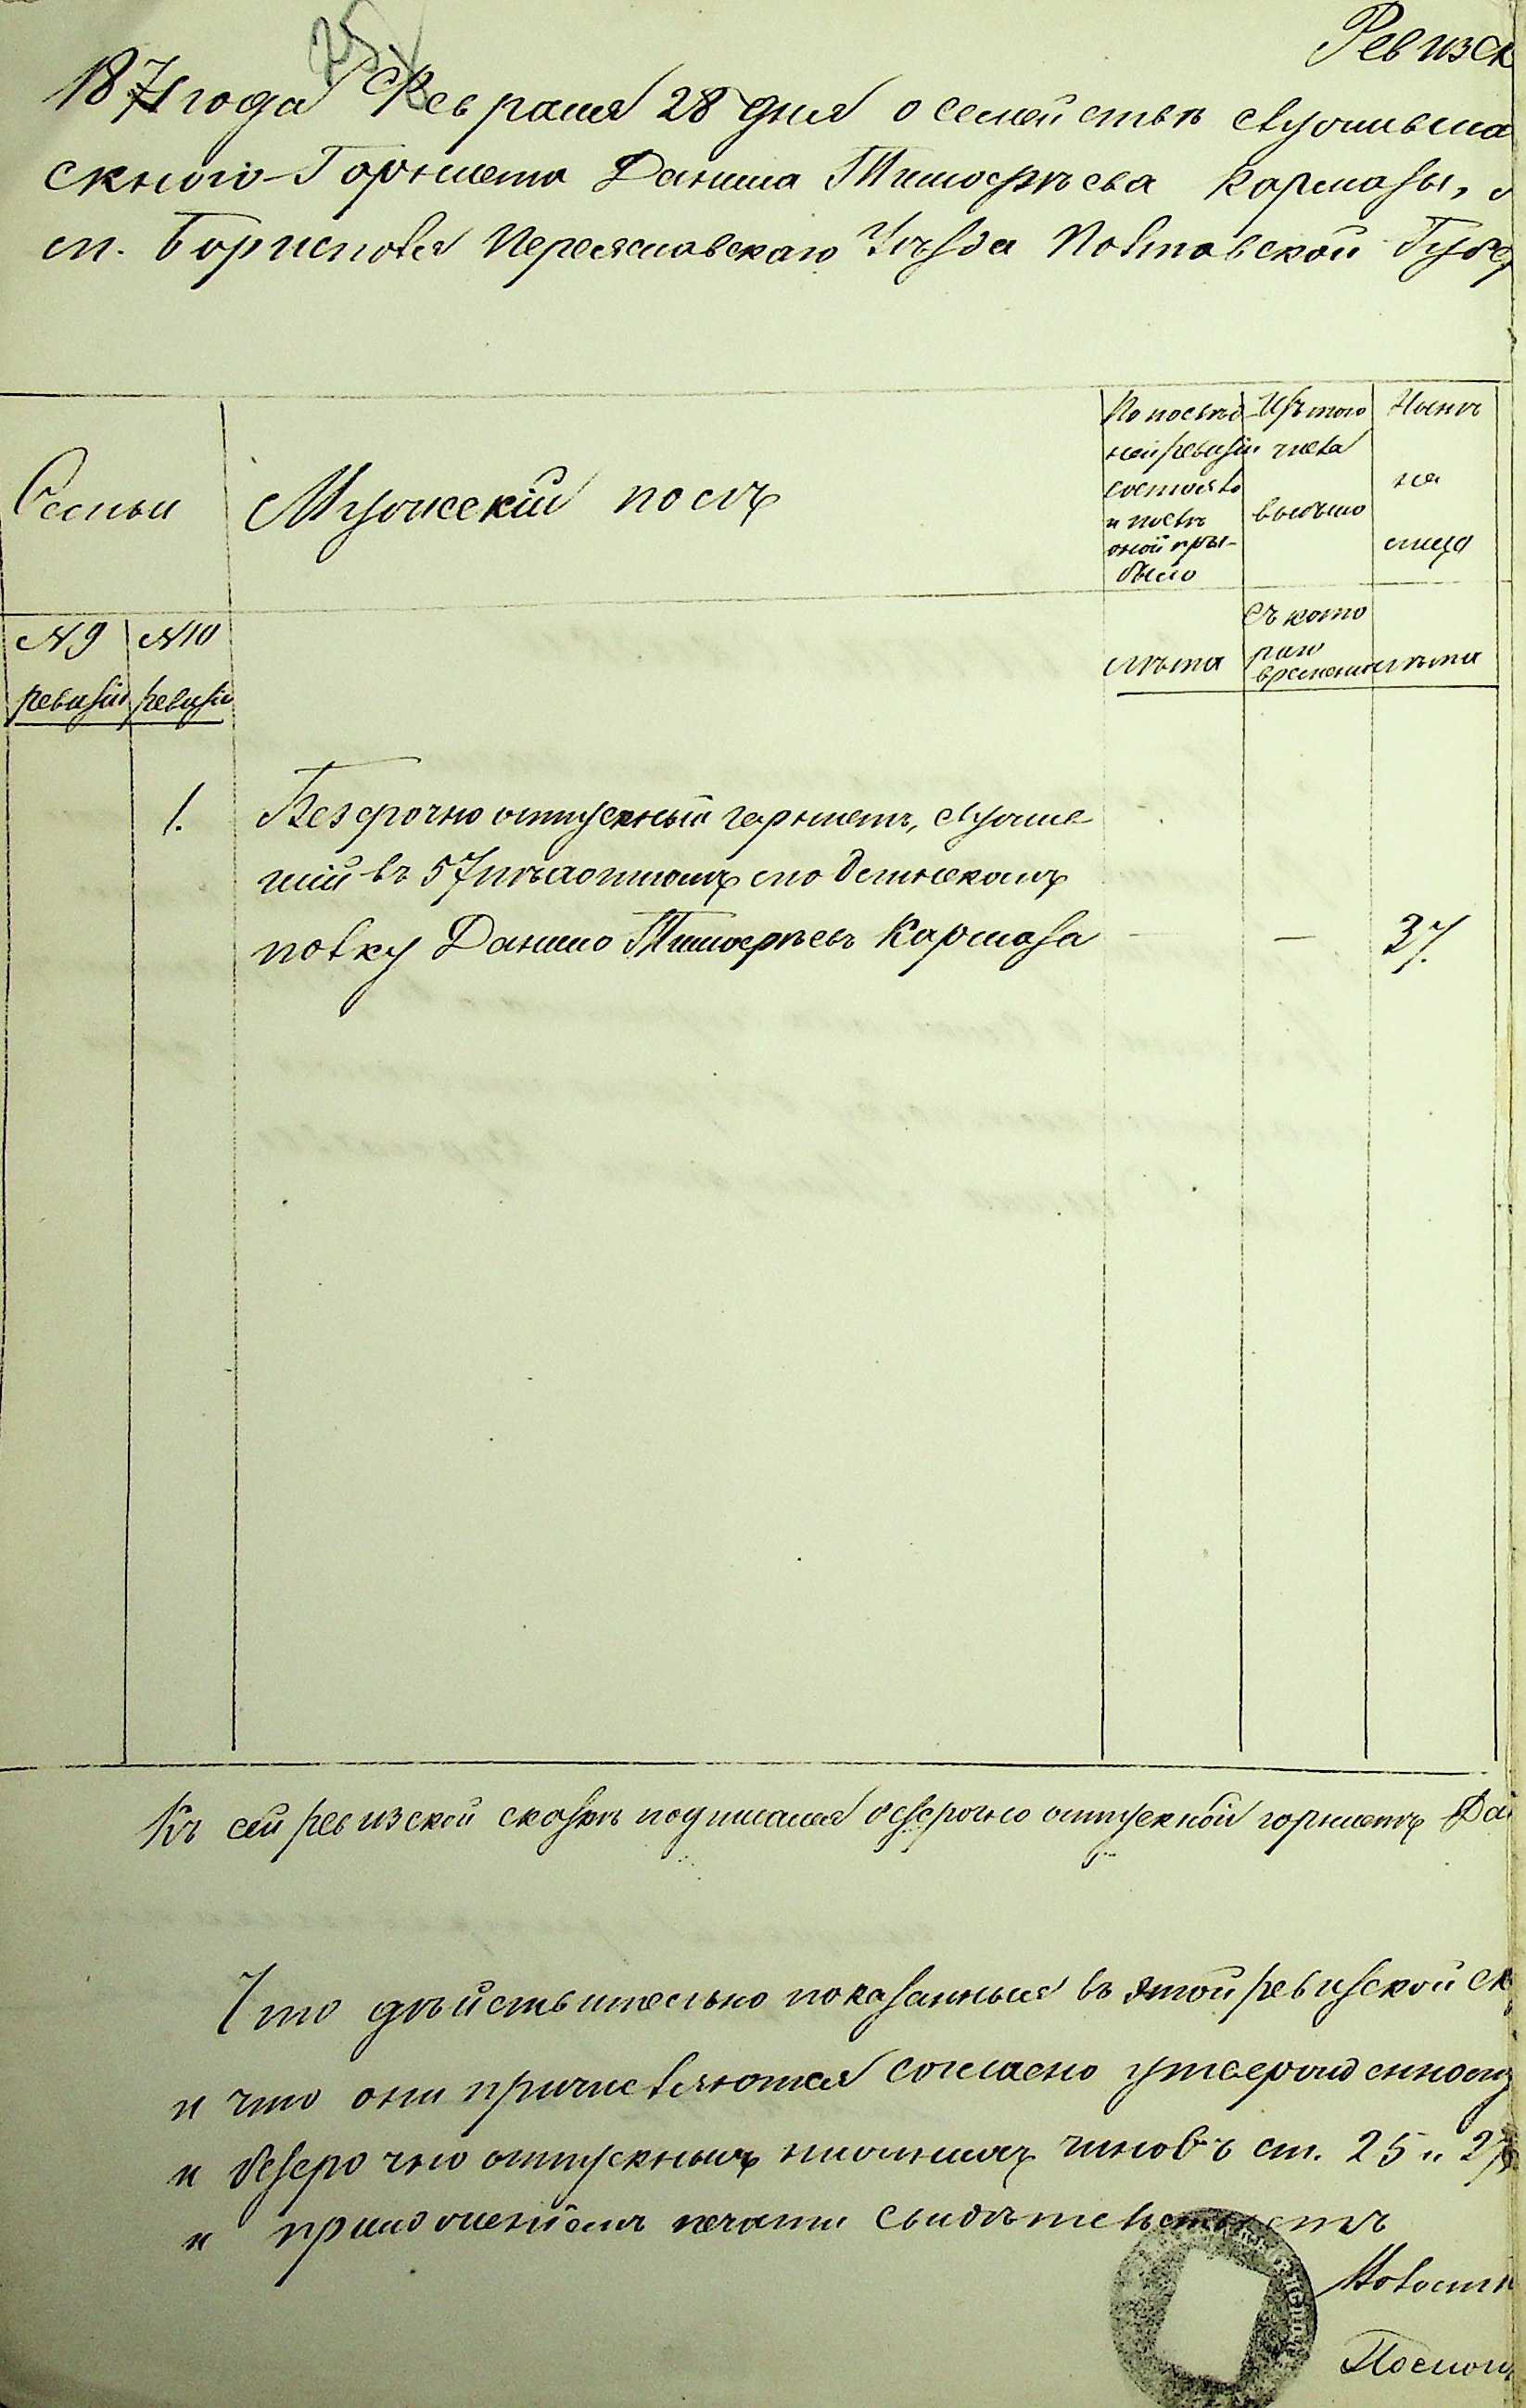 Ревизск
1871 года Февраля 28 дня о семействѣ служивша
скного Горниста Данила Тимофѣева Кармазы,
м. Борисполя Переяславскаго Уѣзда Полтавской Губер
Семьи
Мужескій полъ
По послѣд
ней ревизіи
состояло
и послѣ
оной при-
было
Изъ того
числа
выбыло
Нынѣ
на
лицо
№ 9
ревизіи
№ 10
ревизіи
лѣта
Съ кото
раго
времени
лѣта
1.
Безсрочно отпускный горнистъ, служив
шій въ 57 пѣхотномъ модлинскомъ
полку Данило Тимофѣевъ Кармаза — — 37.
Къ сей ревизской сказкѣ подписался безсрочно отпускной горнистъ Да
Что дѣйствительно показанныя въ этой ревизской ск
и что они причисляются согласно утвержденному
и безсрочно отпускныхъ нижнихъ чиновъ ст. 25 и 27
и приложеніемъ печати свидѣтельствуетъ
Волостн
Помощ